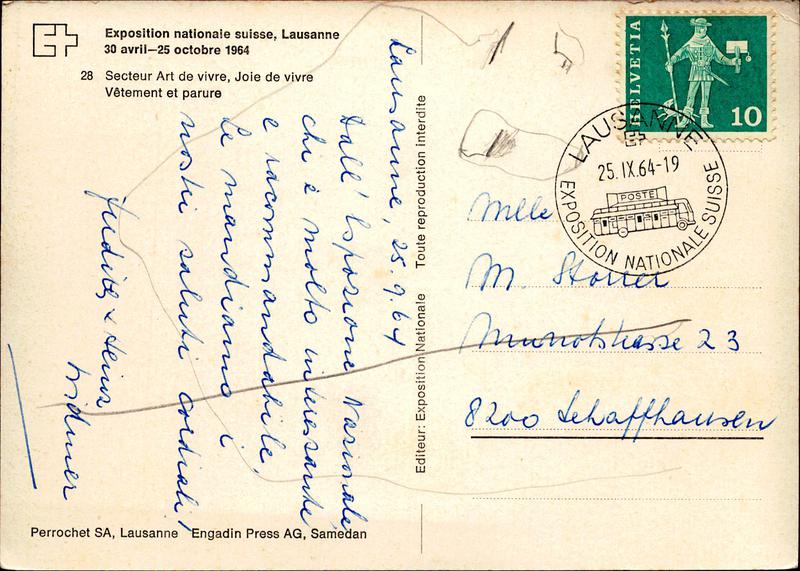 Exposition nationale suisse, Lausanne
30 avril—25 octobre 1964
28 Secteur Art de vivre, Joie de vivre
Vêtement et parure
Lausanne, 25.9.64
Dall' Esposizione Nazionale
chi è molto interessante
e racommandabile,
Le mandiamo i
nostri saluti cordiali!
Judith & Heinz
Widmer
Editeur: Exposition Nationale Toute reproduction interdite
HELVETIA
10
LAUSANNE
25.IX.64-19
POSTE
EXPOSITION NATIONALE SUISSE
Mlle
M. Storrer
Munotstrasse 23
8200 Schaffhausen
Perrochet SA, Lausanne Engadin Press AG, Samedan